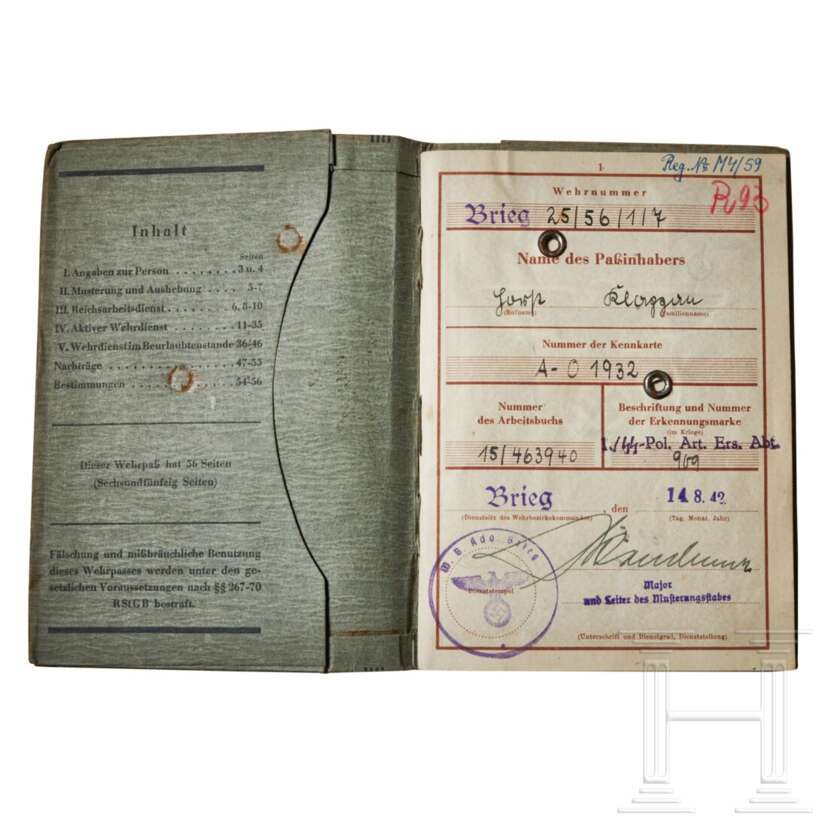 Inhalt
Seiten
I. Angaben zur Person . . . . . . . . 3 u. 4
II. Musterung und Aushebung . . . . 5-7
III. Reichsarbeitsdienst . . . . . . 6, 8-10
IV. Aktiver Wehrdienst . . . . . . 11-35
V. Wehrdienst im Beurlaubtenstande 36-46
Nachträge . . . . . . . . . . . . . . . 47-53
Bestimmungen . . . . . . . . . . . . 54-56
Dieser Wehrpaß hat 56 Seiten
(Sechsundfünfzig Seiten)
Fälschung und mißbräuchliche Benutzung
dieses Wehrpasses werden unter den ge-
setzlichen Voraussetzungen nach §§ 267-70
RStGB bestraft.
1
Reg. № M4/59
R93
Wehrnummer
Brieg 25/56/1/7
Name des Paßinhabers
Horst Klaggan
(Rufname) (Familienname)
Nummer der Kennkarte
A-O 1932
Nummer
des Arbeitsbuchs
15/463940
Beschriftung und Nummer
der Erkennungsmarke
(im Kriege)
1./ϟϟ-Pol. Art. Ers. Abt.
969
Brieg , den 14.8.42
(Dienstsitz des Wehrbezirkskommandos) (Tag, Monat, Jahr)
W. B. Kdo. Brieg
Dienststempel
Major
und Leiter des Musterungsstabes
(Unterschrift und Dienstgrad, Dienststellung)
H